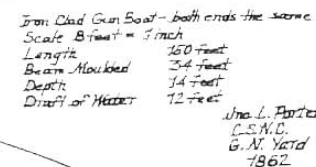 Iron Clad Gun Boat - both ends the same
Scale 8 feet = 1 inch
Length 150 feet
Beam Moulded 34 feet
Depth 14 feet
Draft of Water 12 feet
Jno L. Porter
C.S.N.C.
G.N. Yard
1862